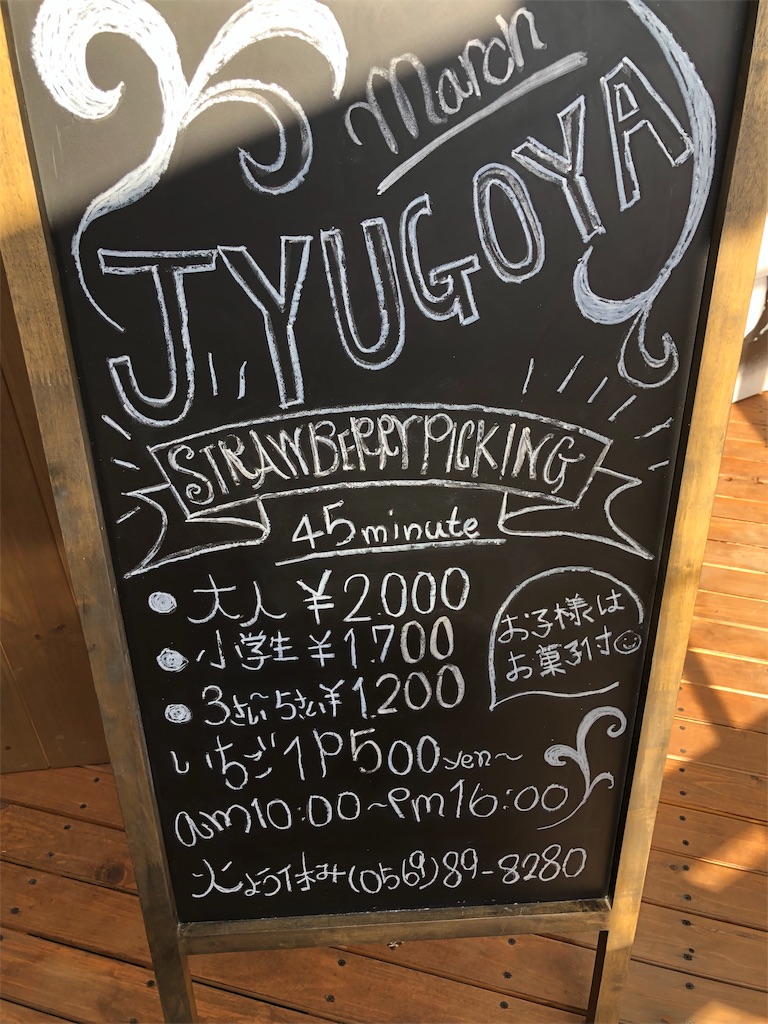 March
JYUGOYA
STRAWBERRY PICKING
45 minute
● 大人 ¥2.000
● 小学生 ¥1.700
● 3さい~5さい¥1.200
お子様は
お菓子付☺
いちご1P500yen~
am10:00~Pm16:00
火よう休み(0569)89-8280